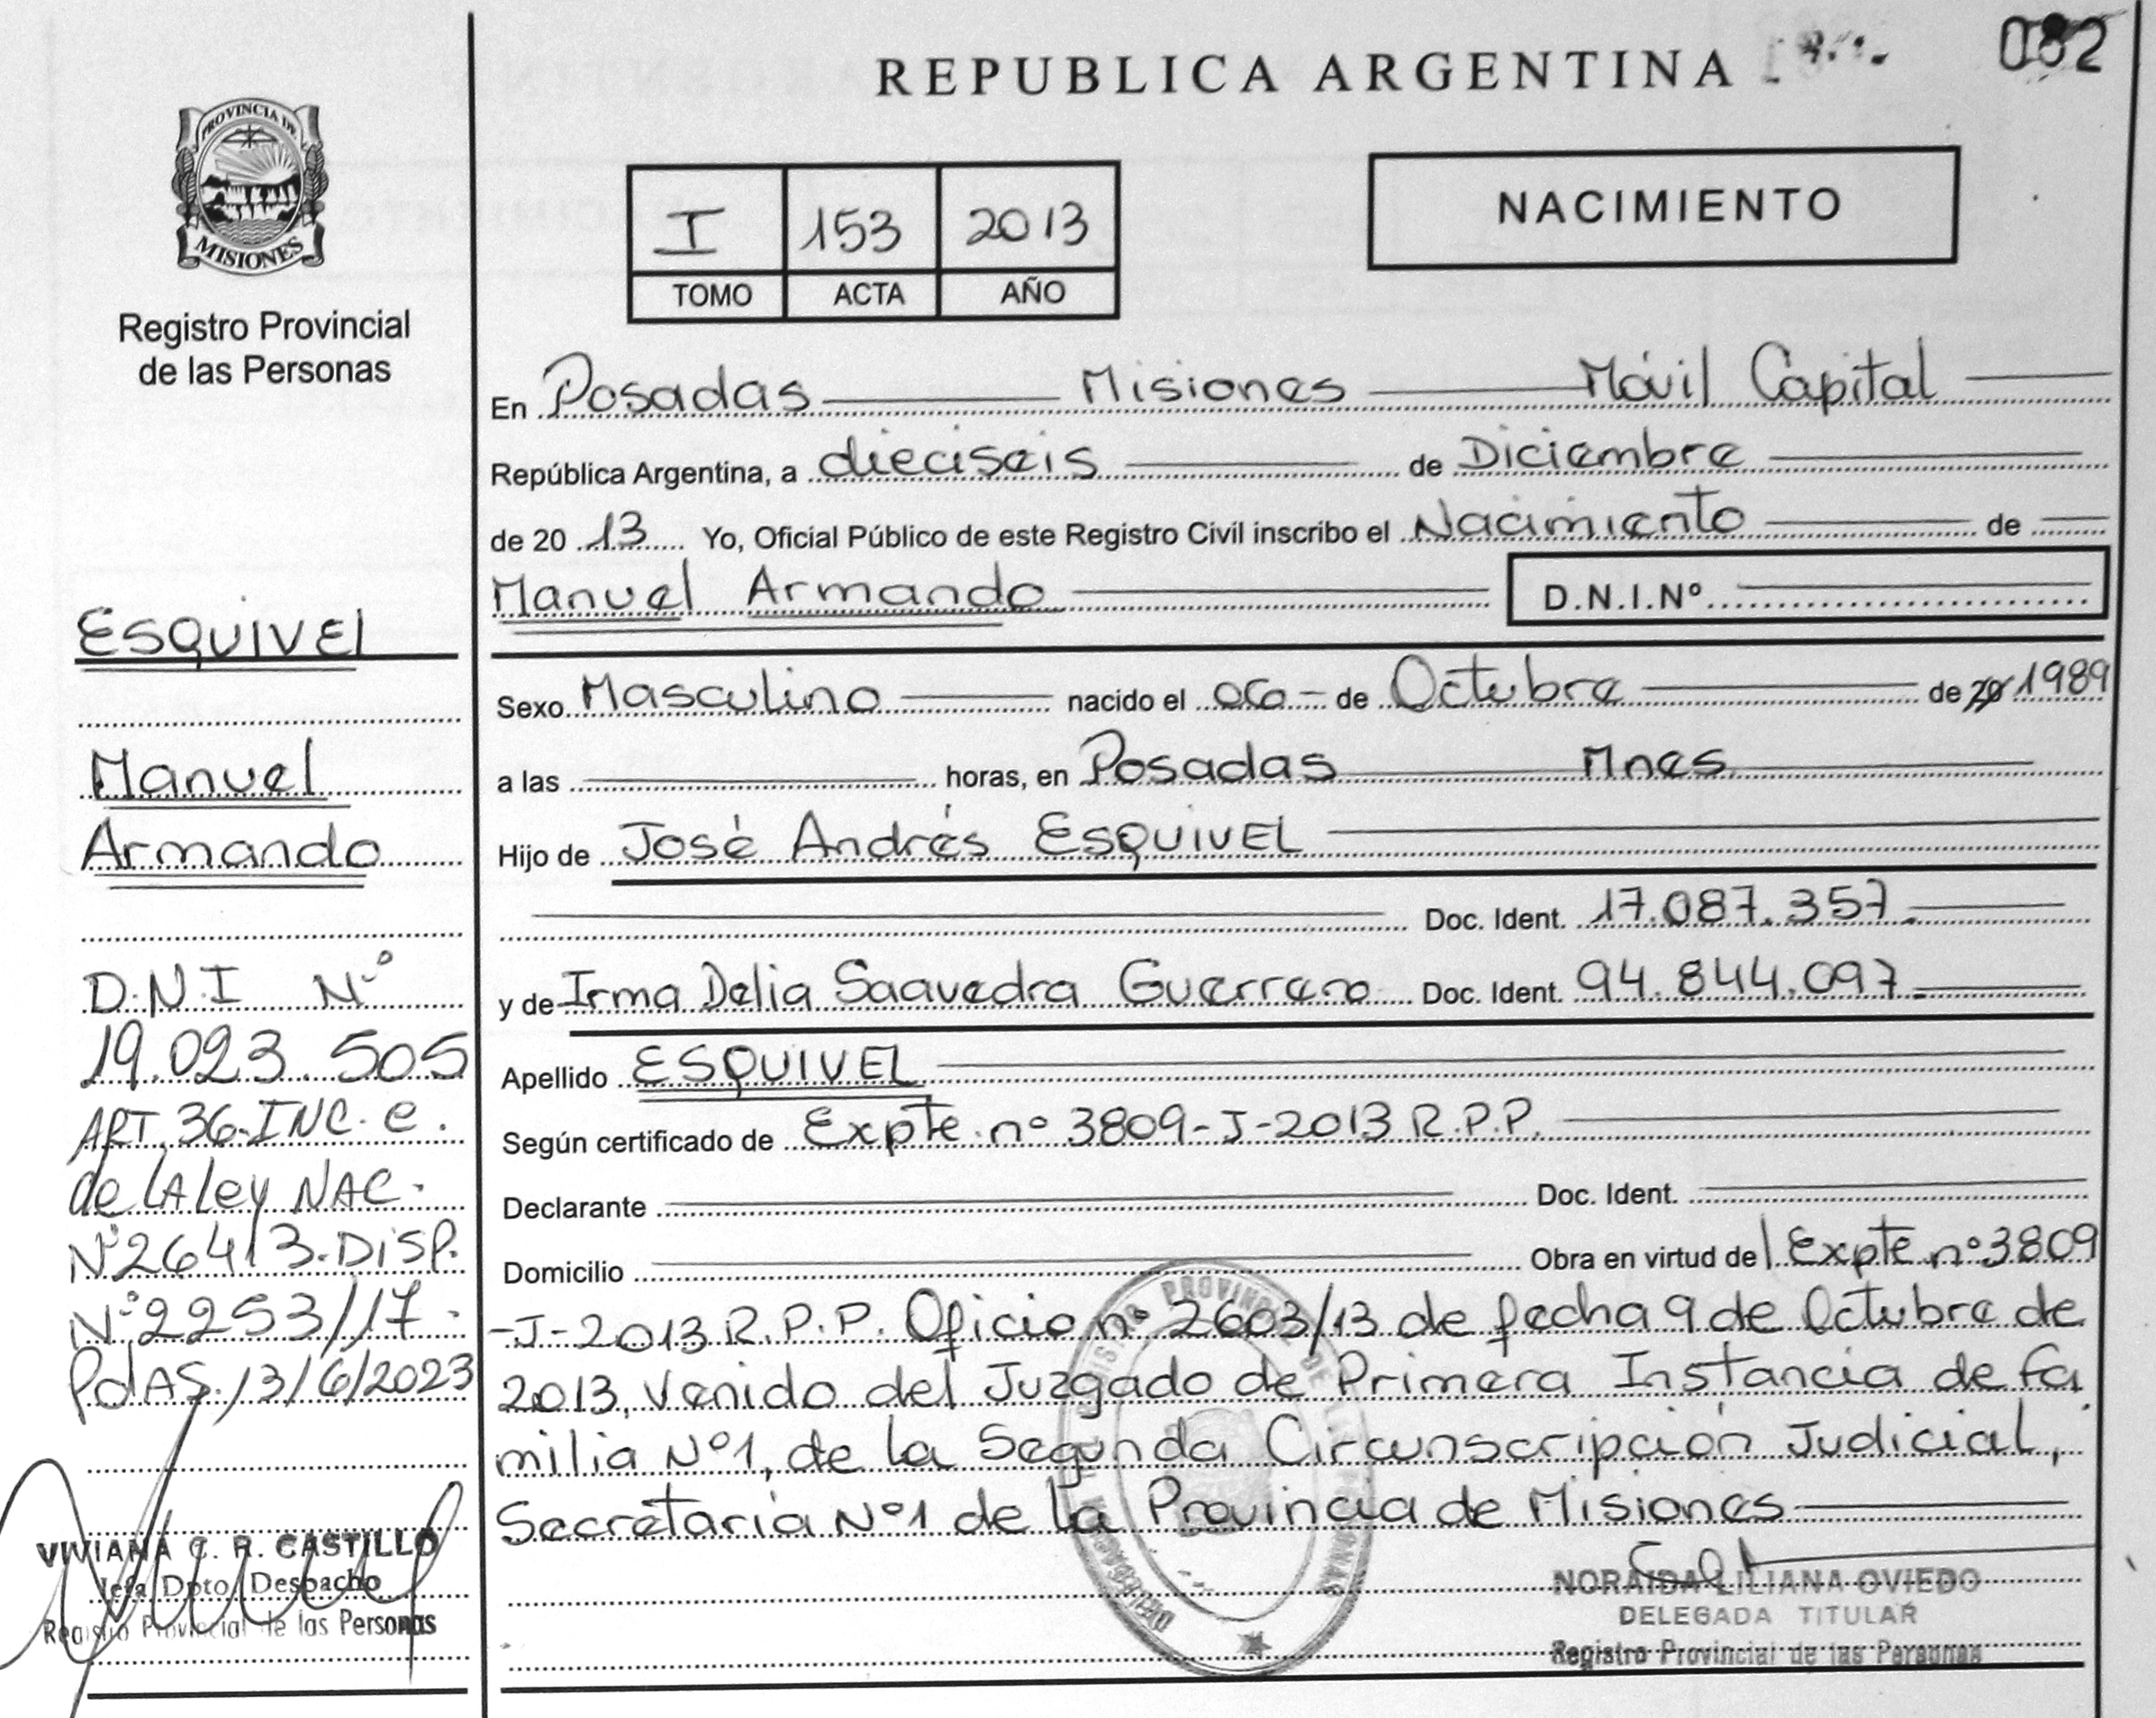 REPUBLICA ARGENTINA
082
PROVINCIA DE
MISIONES
Registro Provincial
de las Personas
I 153 2013
TOMO ACTA AÑO
NACIMIENTO
En Posadas Misiones Móvil Capital
República Argentina, a dieciseis de Diciembre
de 20 13 Yo, Oficial Público de este Registro Civil inscribo el Nacimiento de
Manuel Armando D.N.I.Nº
Sexo Masculino nacido el 06 de Octubre de 20 1989
a las horas, en Posadas Mnes.
Hijo de José Andrés ESQUIVEL
Doc. Ident. 17.087.357.
y de Irma Delia Saavedra Guerrero Doc. Ident. 94.844.097.
Apellido ESQUIVEL
Según certificado de Expte. nº 3809-J-2013 R.P.P.
Declarante Doc. Ident.
Domicilio Obra en virtud de Expte nº 3809
-J-2013 R.P.P. Oficio nº 2603/13 de fecha 9 de Octubre de
2013, Venido del Juzgado de Primera Instancia de Fa
milia Nº1, de la Segunda Circunscripción Judicial,
Secretaría Nº1 de la Provincia de Misiones
NORAIDA LILIANA OVIEDO
DELEGADA TITULAR
Registro Provincial de las Personas
ESQUIVEL
Manuel
Armando
D.N.I Nº
19.023.505
ART. 36-INC. e.
de LA Ley NAC.
Nº 26413.DISP.
Nº 2253/17.
PdAS. 13/6/2023
VIVIANA C. R. CASTILLO
Jefa Dpto. Despacho
Registro Provincial de las Personas